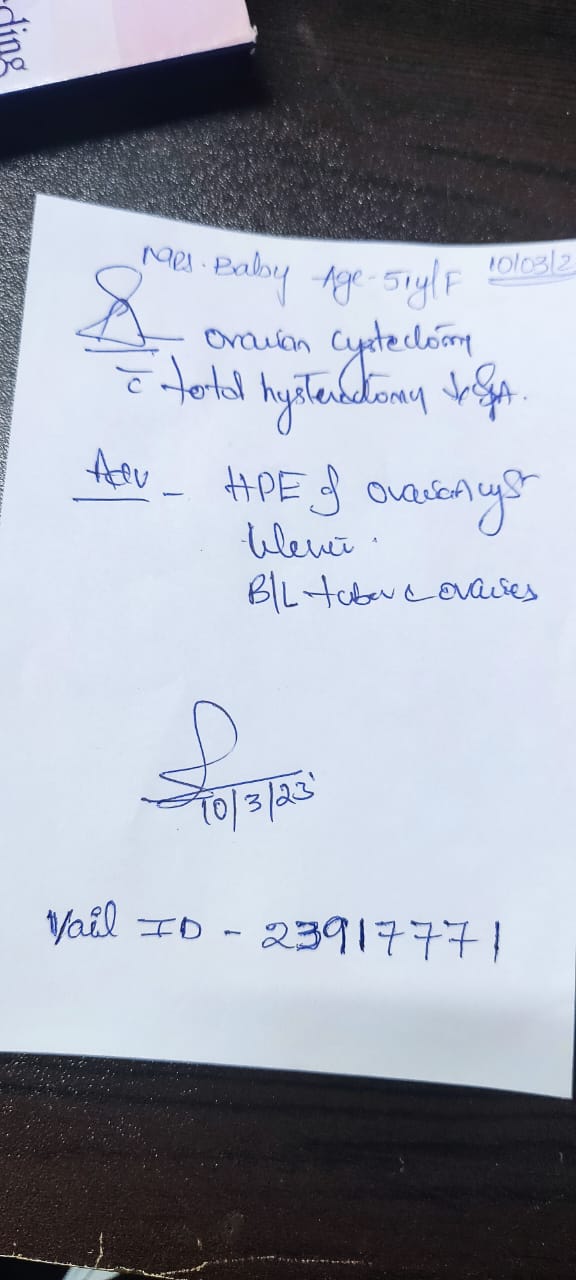 ding
Mrs. Baby Age-51y/F 10/03/2
ovarian cystectomy
c̄ total hysterectomy
Adv - HPE of ovarian cyst
B/L tubes c ovaries
10/3/23
Vail ID - 23917771